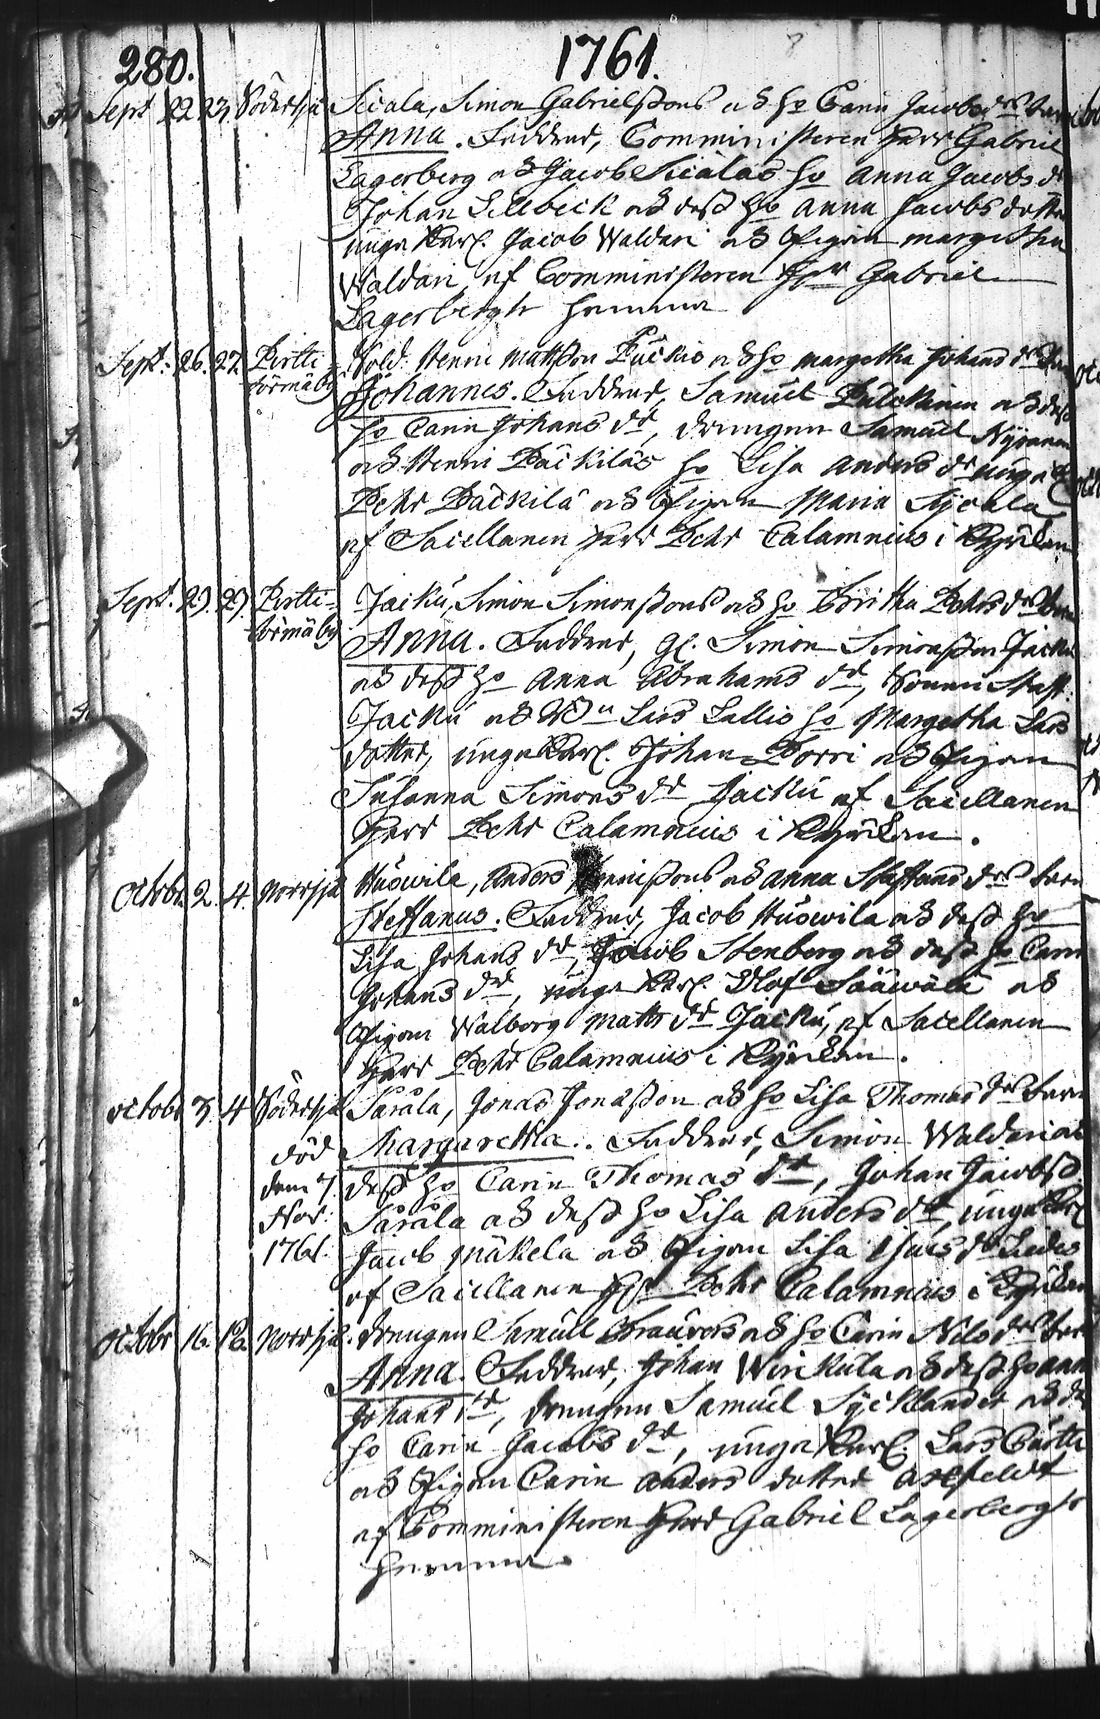 280. 1761.
Sept 22 23 Södersjä Sicala, Simon Gabrielssons och ho Carin Jacobsdrs barn
Anna. Faddrar, Comministeren Herr Gabriel
Lagerberg och Jacob Sicalas ho Anna Jacobs dr
Johan Sillbeck och dess ho Anna Jacobs dotter
unga Karl. Jacob Waldari och Pigan margetha
Waldari, af Comministeren Hr Gabriel
Lagerbergh hemma
Sept. 26. 27. Pirtti- Sold. Henric Mattsson Puckio och ho margetha Johans dr barn
törmäby Johannes. Faddrar, Samuel Pulckinen och dess
ho Carin Johans dr, drengen Samuel Nyranen
och Henric Päckiläs ho Lisa Anders dr unga K
Pehr Päckilä och Pigan Maria Sycala
af Sacellanen Herr Pehr Calamnius i Kyrckan
Sept. 29. 29. Pirtti- Jacku, Simon Simonssons och ho Britha Pehrs dr barn
törmäby Anna. Faddrar, gl. Simon Simonsson Jacku
och dess ho Anna Abrahams dr, Sonen Matt
Jacku och Lars Lallio ho Margetha Lars
dotter, unga Karl. Johan Porri och Pigan
Susanna Simons dr Jacku af Sacellanen
Herr Pehr Calamnius i Kyrckan.
Octobr 2. 4. Norrsjä Huowila, Anders Hennissons och Anna Staffans drs barn
Steffanus. Faddrar, Jacob Huowila och dess ho
Lisa Johans dr, Jacob Stenberg och dess ho Carin
Johans dr, unga Karl. Olof Sääwälä och
Pigan Walborg Matts dr Jacku, af Sacellanen
Herr Pehr Calamnius i Kyrckan.
octobr 3. 4 Södersjä Sarala, Jonas Jonasson och ho Lisa Thomas drs barn
död Margaretha. Faddrar, Simon Waldari och
dem 7 dess ho Carin Thomas dr, Johan Jacobss
Nov. Sarala och dess ho Lisa Anders dr, unga Karl
1761. Jacob Mäkelä och Pigan Lisa dr
af Sacellanen Hr Pehr Calamnius i Kyrckan
octobr 16. 18. Norrsjä. Drengen Samuel och ho Carin Nils drs barn
Anna. Faddrar, Johan Wirckula och dess ho Anna
Johans dr, drengen Samuel Sycklander och dess
ho Carin Jacobs dr, unga Karl. Lars
och Pigan Carin Anders dotter Axfeldt
af Comministeren Herr Gabriel Lagerbergh
hemma.